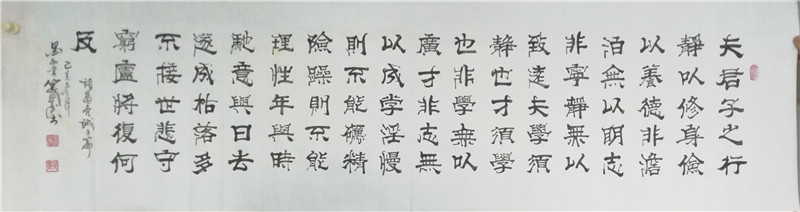 夫君子之行
靜以修身儉
以養德非澹
泊無以明志
非寧靜無以
致遠夫學須
靜也才須學
也非學無以
廣才非志無
以成学淫慢
則不能礪精
險躁則不能
理性年與時
馳意與日去
遂成枯落多
不接世悲守
窮盧將復何
反
諸葛亮誡子篇
己亥